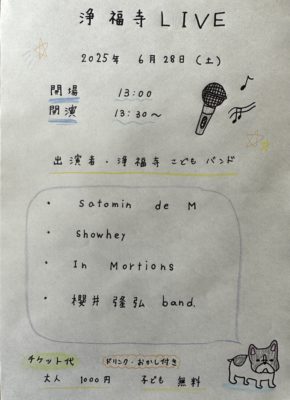 浄福寺 LIVE
2025年 6月28日(土)
開場 13:00
開演 13:30〜
出演者・浄福寺こどもバンド
・ Satomin de M
・ Showhey
・ In Mortions
・ 櫻井隆弘 band.
チケット代 ドリンク・おかし付き
大人 1000円 子ども 無料